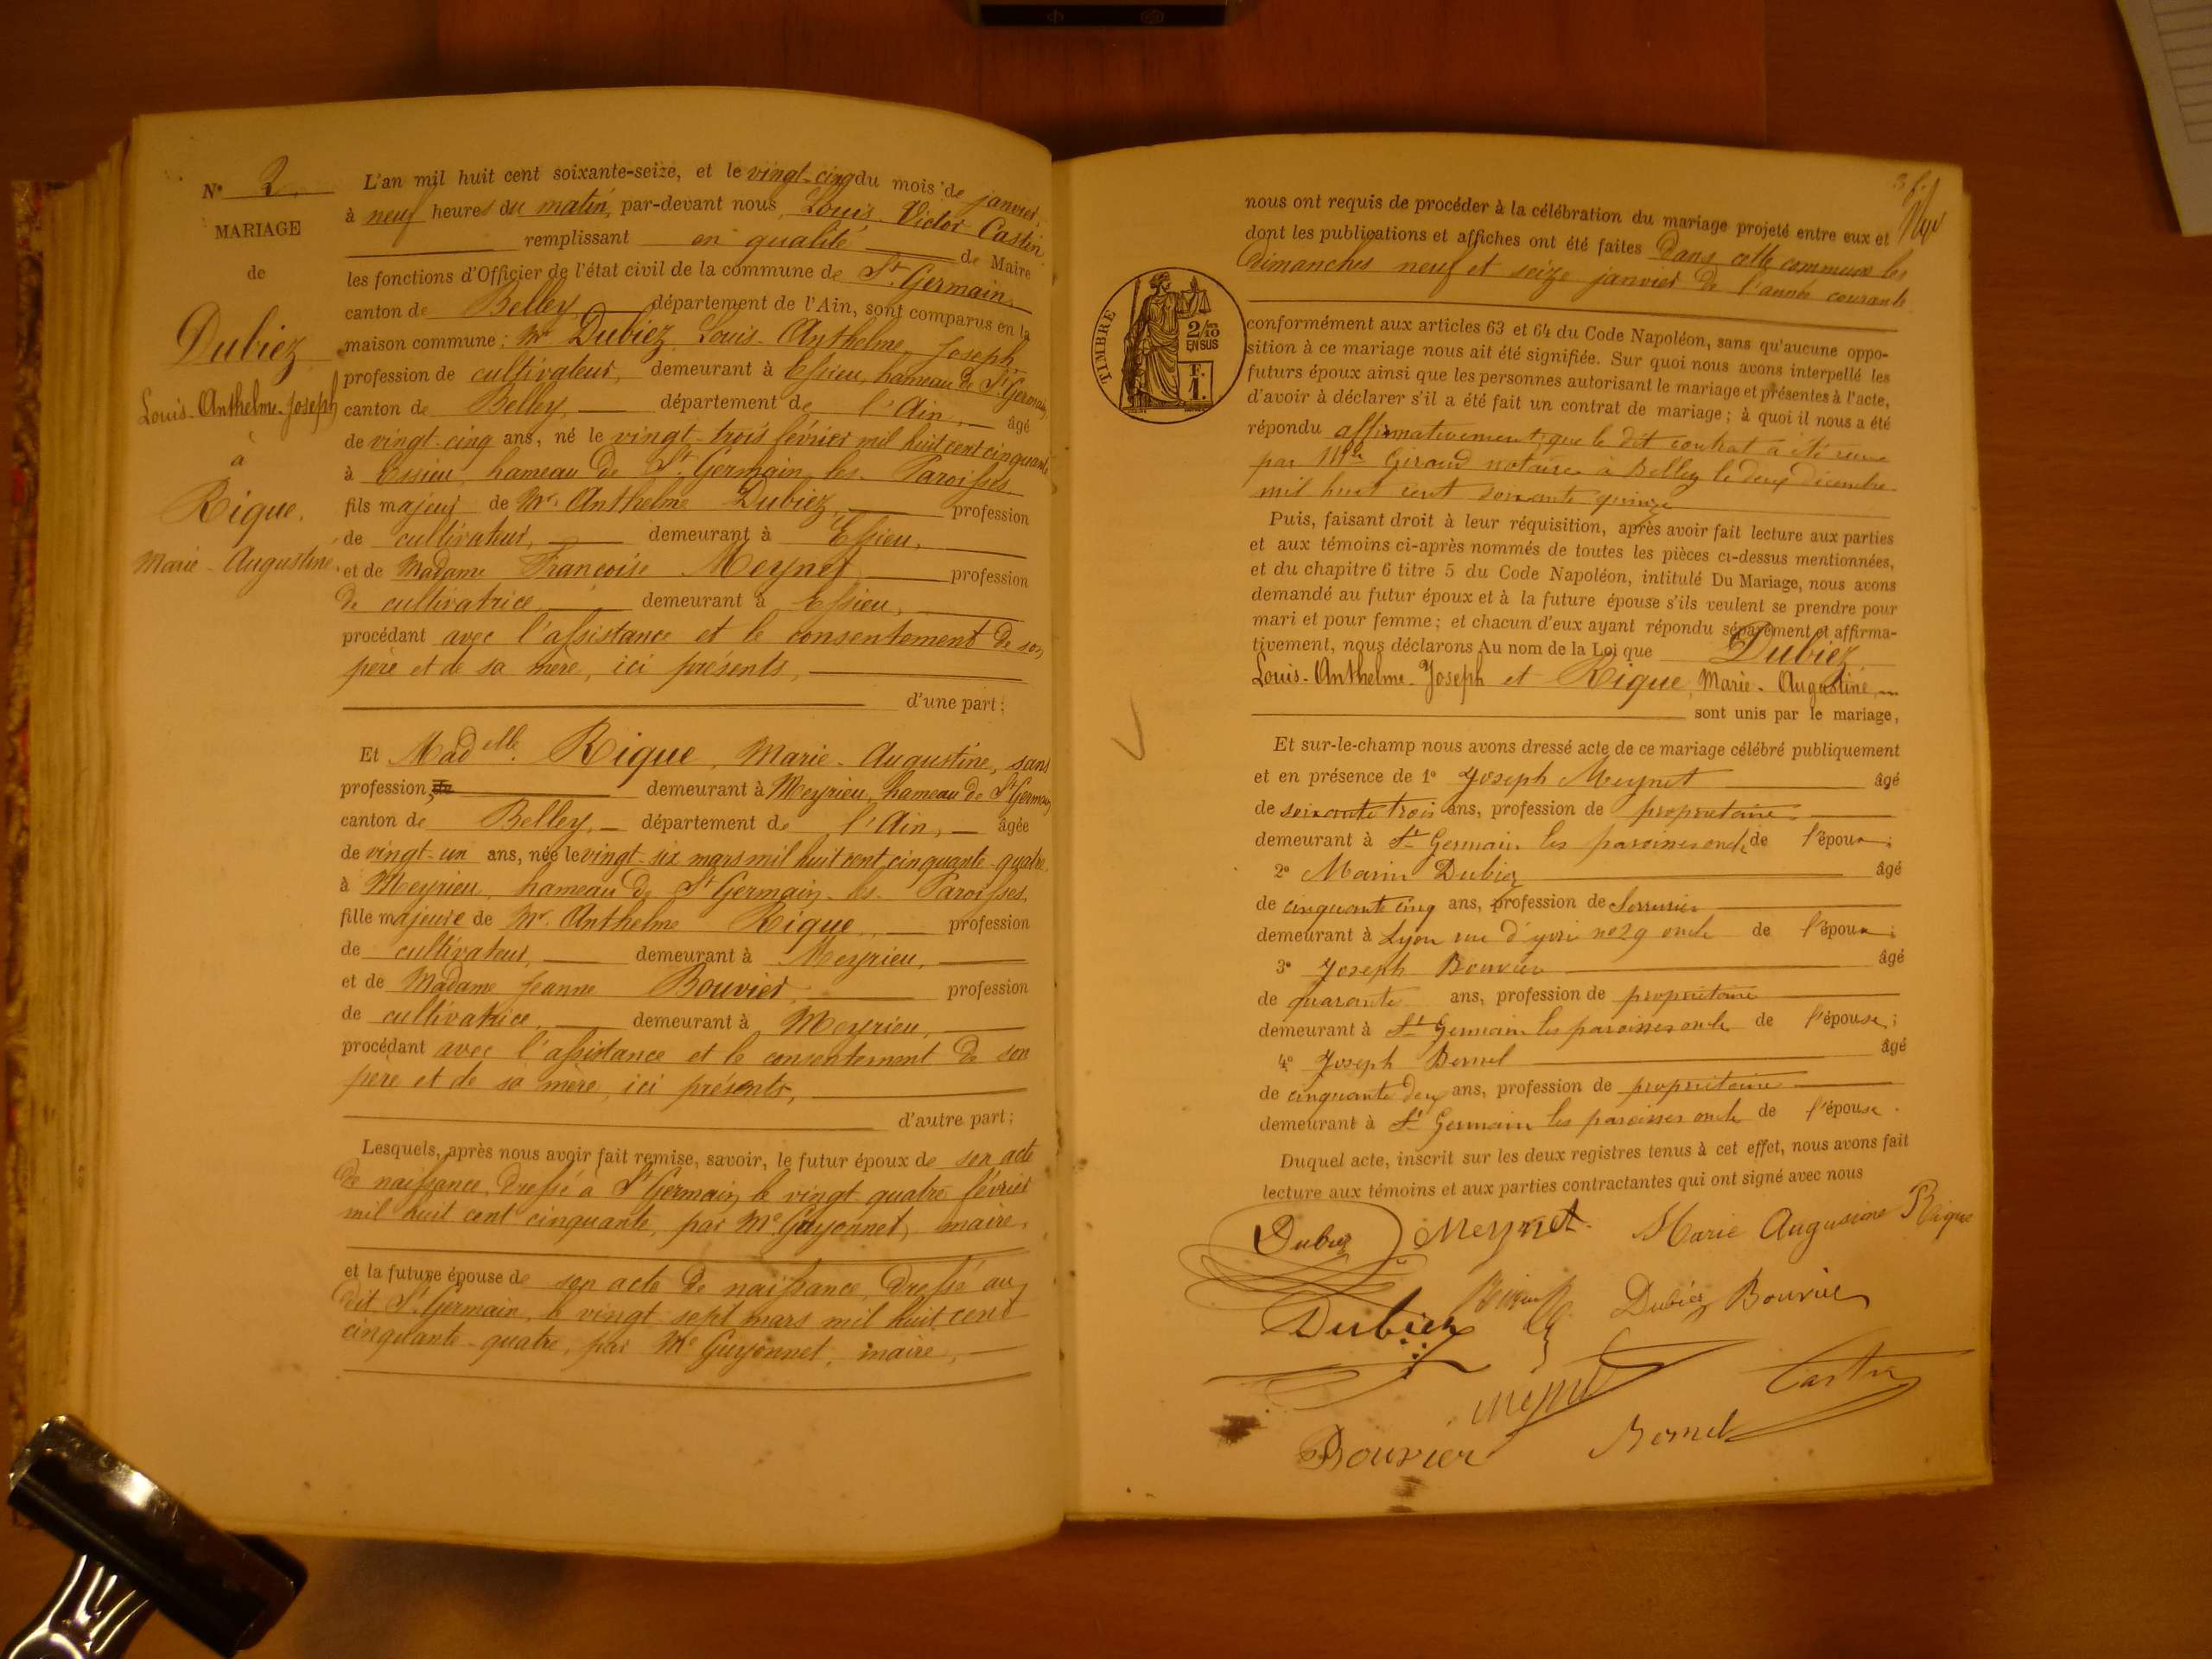 N° 2.
MARIAGE
de
Dubiez
Louis-Anthelme-Joseph
à
Rique.
Marie-Augustine.
L'an mil huit cent soixante-seize, et le vingt-cinq du mois de janvier,
à neuf heures du matin, par-devant nous, Louis Victor Castin.
remplissant en qualité de Maire
les fonctions d'Officier de l'état civil de la commune de St. Germain
canton de Belley département de l'Ain, sont comparus en la
maison commune: Mr. Dubiez, Louis-Anthelme-Joseph,
profession de cultivateur, demeurant à Essieu, hameau de St Germain,
canton de Belley, département de l'Ain, âgé
de vingt-cinq ans, né le vingt-trois février mil huit cent cinquante
à Essieu, hameau de St. Germain-les-Paroisses
fils majeur de Mr. Anthelme Dubiez, profession
de cultivateur, demeurant à Essieu,
et de Madame Françoise Meynet profession
de cultivatrice, demeurant à Essieu,
procédant avec l'assistance et le consentement de son
père et de sa mère, ici présents,
d'une part;
Et Madelle. Rique, Marie-Augustine, sans
profession, de demeurant à Meyrieu, hameau de St Germain,
canton de Belley, département de l'Ain, âgée
de vingt-un ans, née le vingt-six mars mil huit cent cinquante-quatre
à Meyrieu, hameau de St Germain-les-Paroisses,
fille majeure de Mr. Anthelme Rique, profession
de cultivateur, demeurant à Meyrieu,
et de Madame Jeanne Bouvier, profession
de cultivatrice, demeurant à Meyrieu,
procédant avec l'assistance et le consentement de son
père et de sa mère, ici présents,
d'autre part;
Lesquels, après nous avoir fait remise, savoir, le futur époux de son acte
de naissance, dressé à St Germain, le vingt-quatre février
mil huit cent cinquante, par Me. Guyonnet, maire,
et la future épouse de son acte de naissance, dressé au
dit St. Germain, le vingt-sept mars mil huit cent
cinquante-quatre, par Me Guyonnet, maire,
nous ont requis de procéder à la célébration du mariage projeté entre eux et
dont les publications et affiches ont été faites dans cette commune les
dimanches neuf et seize janvier de l'année courante
TIMBRE
2/10
EN SUS
F.
1.
conformément aux articles 63 et 64 du Code Napoléon, sans qu'aucune oppo-
sition à ce mariage nous ait été signifiée. Sur quoi nous avons interpellé les
futurs époux ainsi que les personnes autorisant le mariage et présentes à l'acte,
d'avoir à déclarer s'il a été fait un contrat de mariage; à quoi il nous a été
répondu affirmativement, que le dit contrat a été
par Giraud notaire à Belley le deux décembre
mil huit cent soixante quinze
Puis, faisant droit à leur réquisition, après avoir fait lecture aux parties
et aux témoins ci-après nommés de toutes les pièces ci-dessus mentionnées,
et du chapitre 6 titre 5 du Code Napoléon, intitulé Du Mariage, nous avons
demandé au futur époux et à la future épouse s'ils veulent se prendre pour
mari et pour femme; et chacun d'eux ayant répondu séparément et affirma-
tivement, nous déclarons Au nom de la Loi que Dubiez,
Louis-Anthelme-Joseph et Rique, Marie-Augustine,
sont unis par le mariage,
Et sur-le-champ nous avons dressé acte de ce mariage célébré publiquement
et en présence de 1° Joseph Meynet âgé
de soixante trois ans, profession de propriétaire
demeurant à St Germain les paroisses oncle de l'époux;
2° Marin Dubiez âgé
de cinquante cinq ans, profession de Serrurier
demeurant à Lyon rue d'yvri no 29 oncle de l'époux;
3° Joseph Bouvier âgé
de quarante ans, profession de propriétaire
demeurant à St Germain les paroisses oncle de l'épouse;
4° Joseph Bornel âgé
de cinquante deux ans, profession de propriétaire
demeurant à St Germain les paroisses oncle de l'épouse.
Duquel acte, inscrit sur les deux registres tenus à cet effet, nous avons fait
lecture aux témoins et aux parties contractantes qui ont signé avec nous
Dubiez Meynet. Marie Augusine Rique
Dubiez Bouvier
Dubiez
Castin
Bouvier Bornel